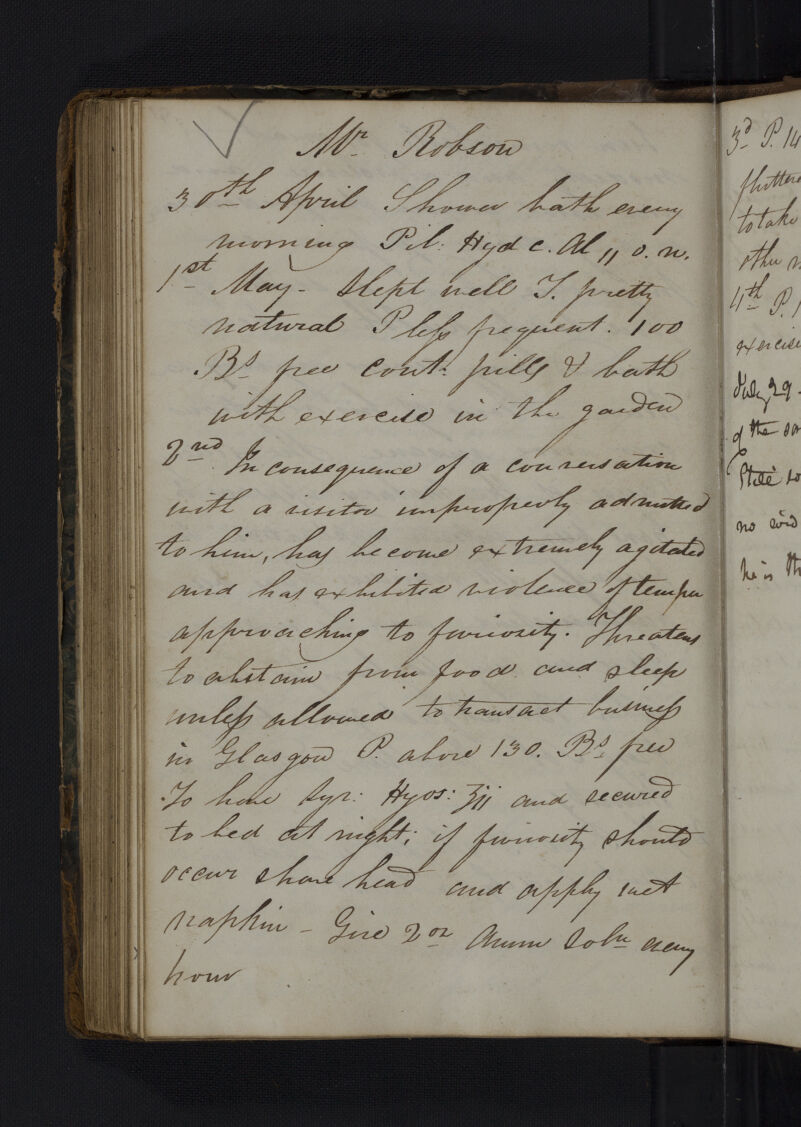 Mr. Robson
30th April Shower bath every
morning Pil: Hyd c. Al ij o. n.
1st May - Slept well T. pretty
natural P less frequent. 100
Bs. free Cont: pills & bath
with exercise in the garden
2nd In consequence of a conversation
with a visitor improperly admitted
to him, has become extremely agitated
and has exhibited violence of temper
approaching to furiosity. Threatens
to abstain from food and sleep
unless allowed to transact business
in Glasgow P. above 130. Bs. free
To have Syr: Hyos: ʒij and secured
to bed at night; if furiosity should
occur shave head and apply wet
napkin - Give 2oz Amm Soln every
hour
3d P. 14
to take
4th P. 1
July 29
of the
State so
no
he is th